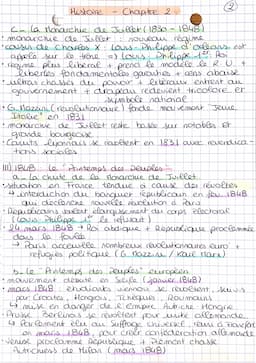 Histoire - Chapitre 2
②
c. La Monarchie de Juillet (1830 - 1848)
• monarchie de Juillet : nouveau régime
• cousin de Charles X : Louis-Philippe d'Orléans est
appelé sur le trône => Louis-Philippe 1er Roi
• régime plus libéral + proche modèle le R.U. +
libertés fondamentales gauches + sens abaissé
• ultras chassés du pouvoir + libéraux entrent au
gouvernement + drapeau redevient tricolore et
symbole national
• G. Mazzini (révolutionnaire) fonde mouvement Jeune
Italie en 1831
• monarchie de Juillet reste basée sur notables et
grande bourgeoisie
• Canuts lyonnais se révoltent en 1831 avec revendica-
tions sociales
III) 1848 : le "Printemps des Peuples"
a - La chute de la Monarchie de Juillet
• situation en France tendue à cause des révoltes
↳ interdiction du banquet républicain en fev. 1848
qui déclenche nouvelle révolution à Paris
• Républicains veulent élargissement du corps électoral
(Louis Philippe 1er le refusait)
• 24 mars 1848 → Roi abdique + République proclamée
dans la foulée
→ Paris accueille nombreux révolutionnaires euro +
réfugiés politique (G. Mazzini / Karl Marx)
b. Le "Printemps des Peuples" européen
• mouvement débute en Sicile (janvier 1848)
• mars 1848, étudiants viennois se révoltent, suivis
par Croates, Hongrois, Tchèques, Roumains
↳ met en danger de l'Empire Autriche Hongrie
• Prusse, Berlinois se révoltent pour unité allemande
↳ Parlement élu au suffrage universel, réuni à Francfort
en mars 1848, pour créer confédération allemande
• Venise proclame République + Piémont chasse
Autrichiens de Milan (mars 1848)